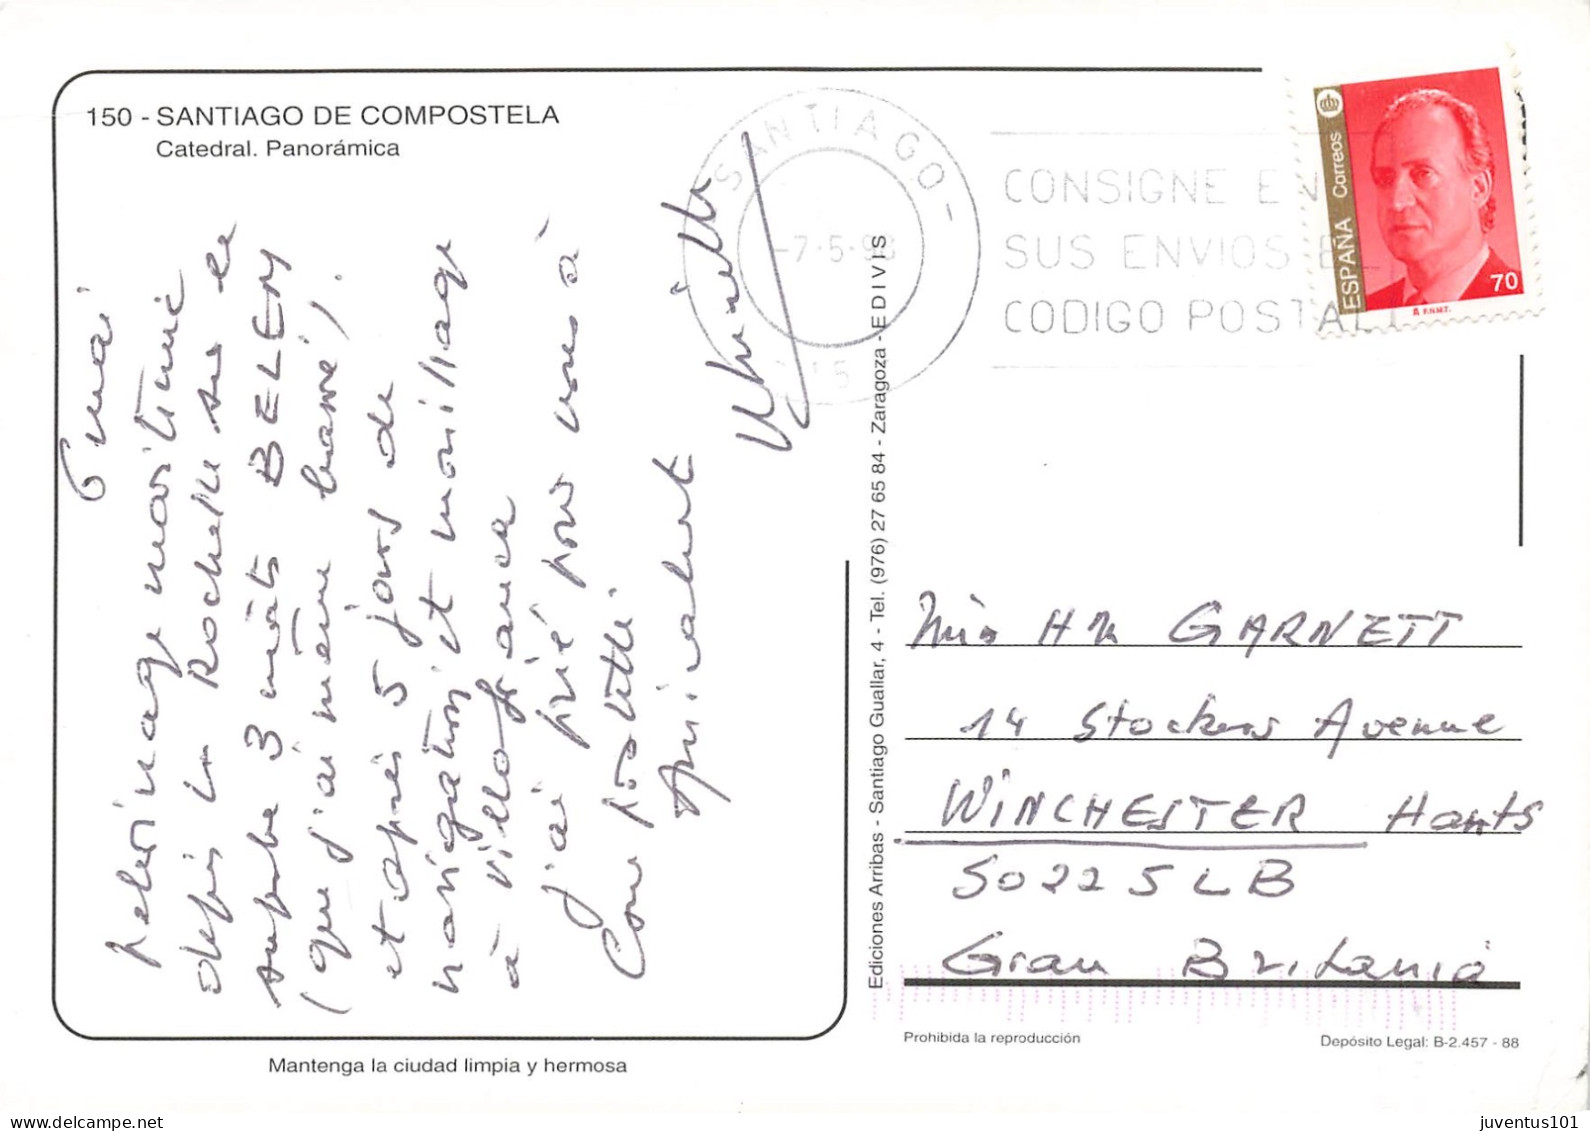 150 - SANTIAGO DE COMPOSTELA
Catedral. Panorámica
6 mai
pelerinage maritime
depuis La Rochelle sur le
superbe 3 mâts BELEM
(que j'ai même barré).
et après 5 jours de
navigation et mouillage
à Villafranca
j'ai prié pour vous à
Compostelle.
Amicalement
Mantenga la ciudad limpia y hermosa
Ediciones Arribas - Santiago Guallar, 4 - Tel. (976) 27 65 84 - Zaragoza - EDIVIS
SANTIAGO -
-7-5-98
CONSIGNE EN
SUS ENVIOS EL
CODIGO POSTAL
ESPAÑA Correos
70
F.N.M.T.
Miss HM GARNETT
14 Stockers Avenue
WINCHESTER Hants
SO22 5LB
Gran Britania
Prohibida la reproducción
Depósito Legal: B-2.457 - 88
juventus101